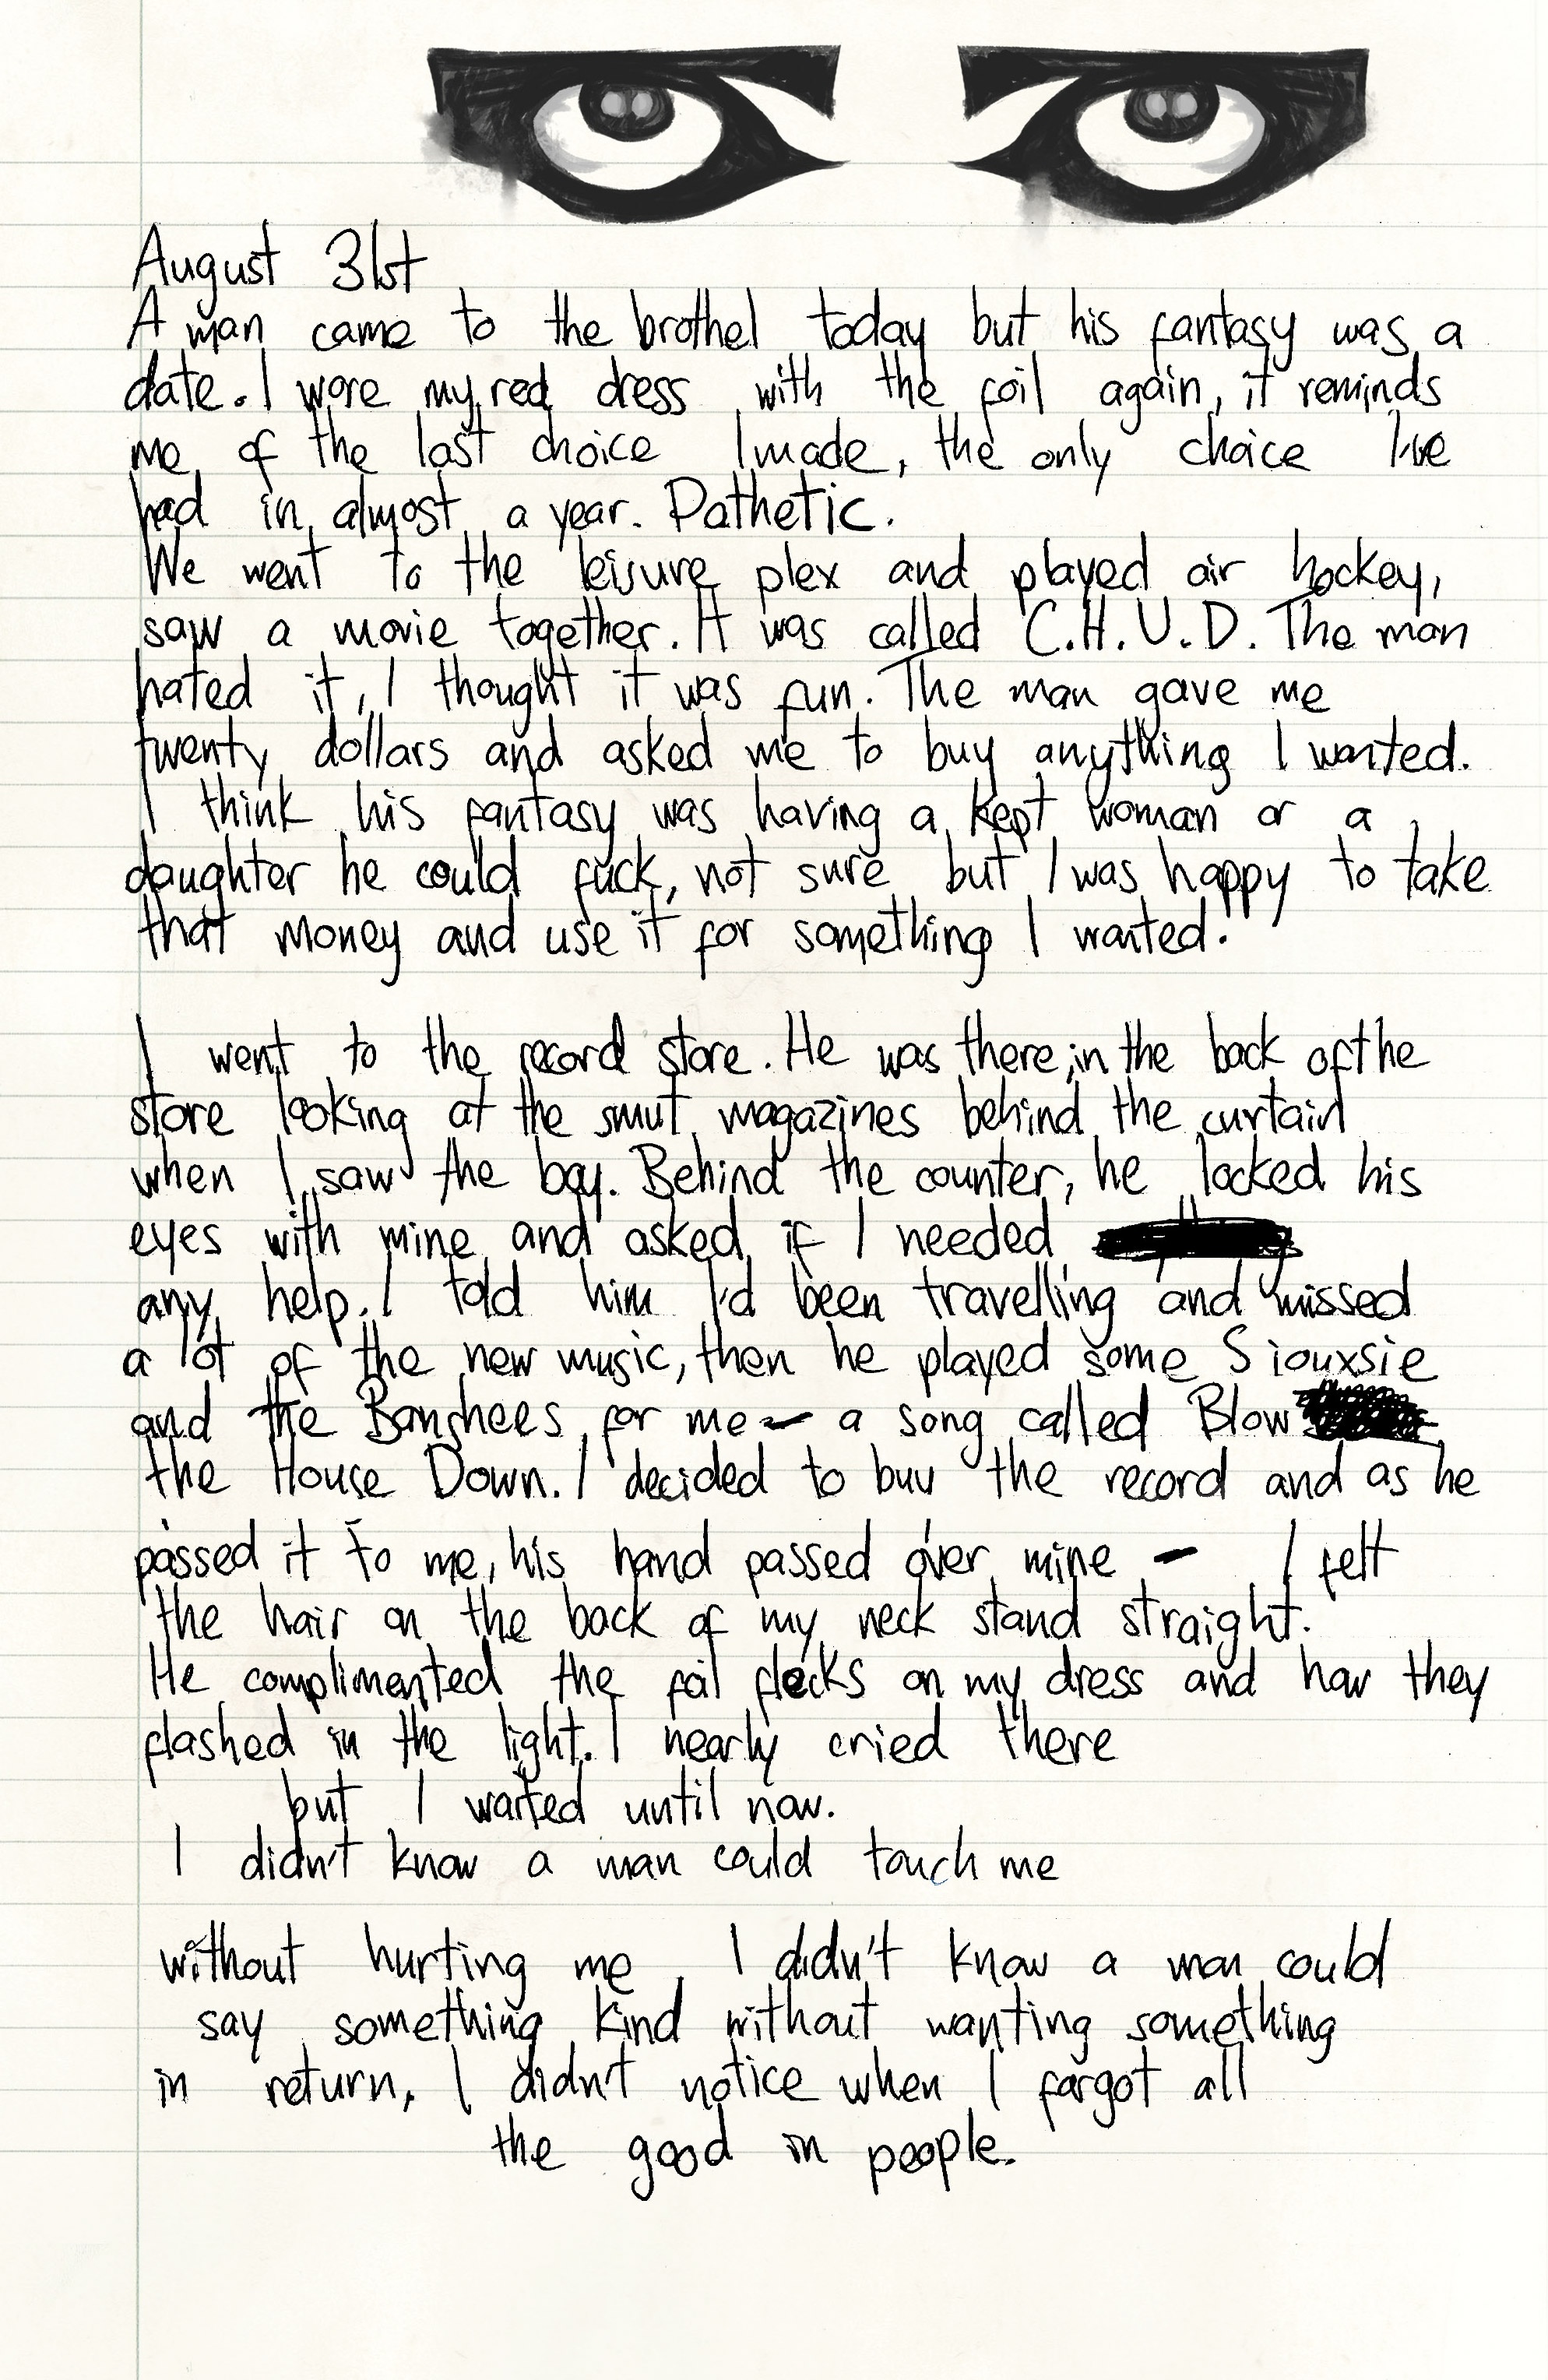 August 31st
A man came to the brothel today but his fantasy was a
date. I wore my red dress with the foil again, it reminds
me of the last choice I made, the only choice I've
had in almost a year. Pathetic.
We went to the leisure plex and played air hockey,
saw a movie together. It was called C.H.U.D. The man
hated it, I thought it was fun. The man gave me
twenty dollars and asked me to buy anything I wanted.
I think his fantasy was having a kept woman or a
daughter he could fuck, not sure but I was happy to take
that money and use it for something I wanted.
I went to the record store. He was there, in the back of the
store looking at the smut magazines behind the curtain
when I saw the boy. Behind the counter, he locked his
eyes with mine and asked if I needed
any help. I told him I'd been travelling and missed
a lot of the new music, then he played some Siouxsie
and the Banshees for me - a song called Blow
the House Down. I decided to buy the record and as he
passed it to me, his hand passed over mine - I felt
the hair on the back of my neck stand straight.
He complimented the foil flecks on my dress and how they
flashed in the light. I nearly cried there
but I waited until now.
I didn't know a man could touch me
without hurting me, I didn't know a man could
say something kind without wanting something
in return, I didn't notice when I forgot all
the good in people.